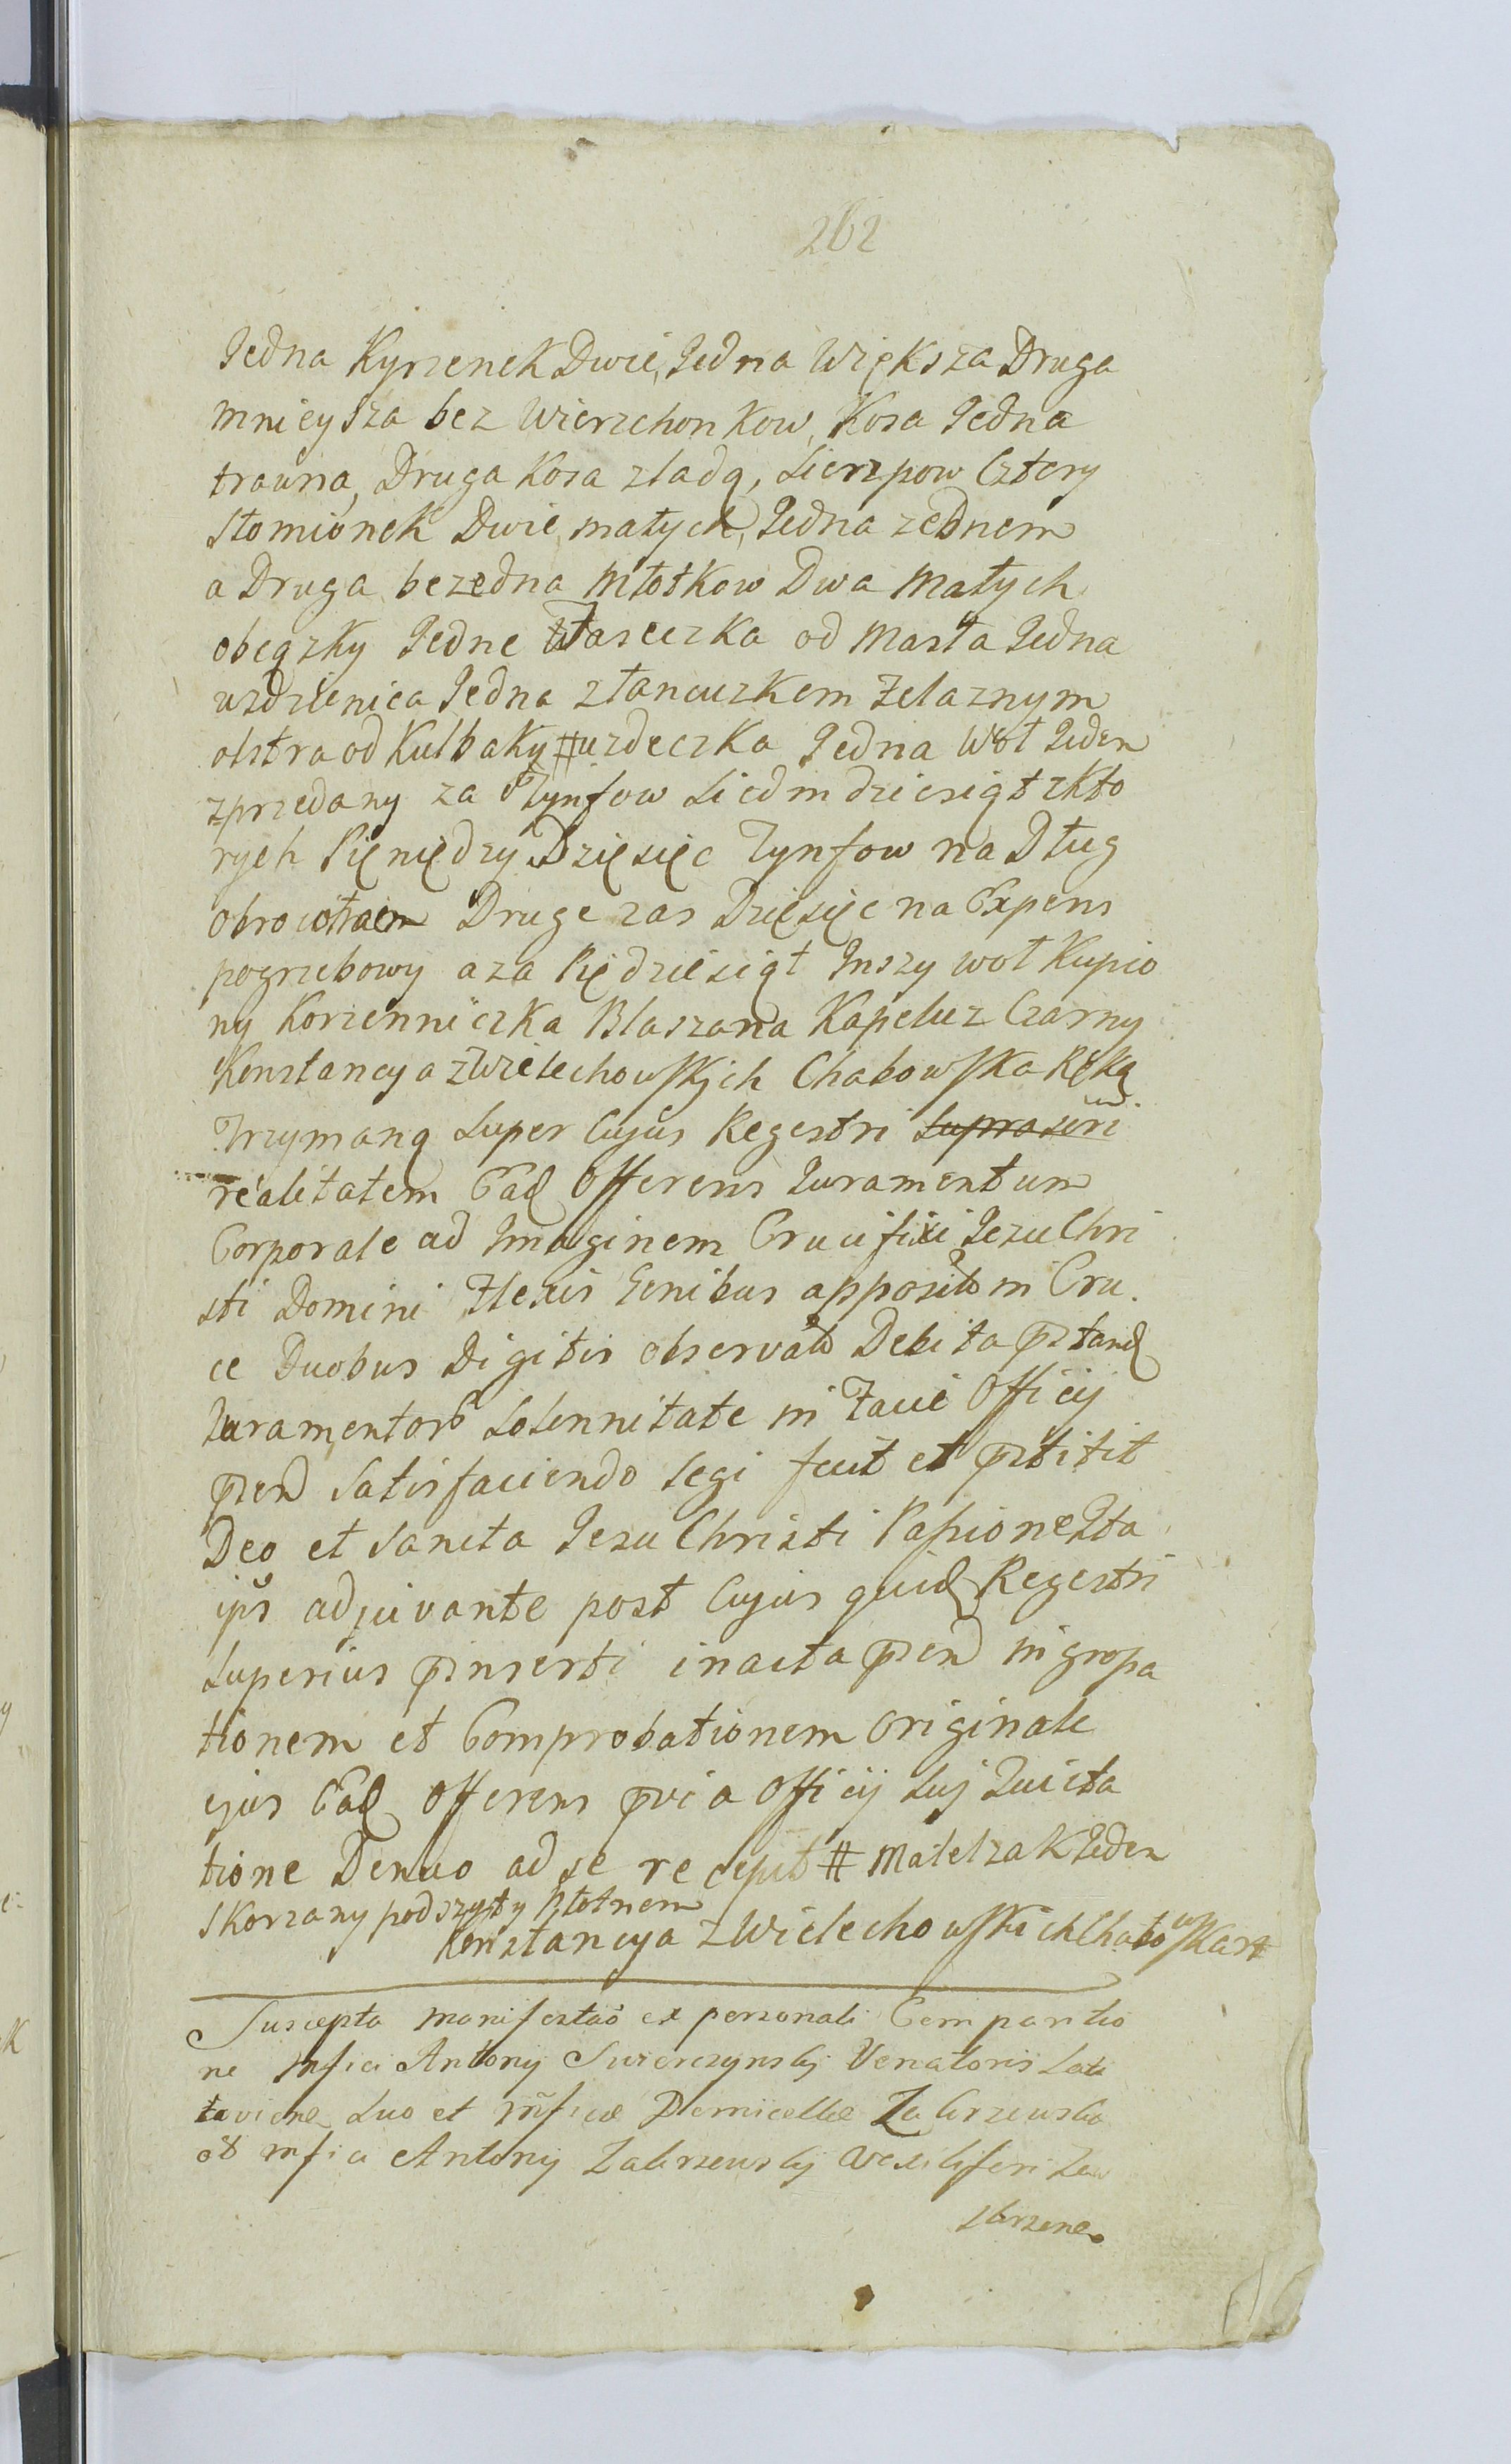 262
Jedna Kyrzenek Dwie, Jedna Większa Druga
mnieysza bez Wierzchonkow, Kosa Jedna
trawna, Druga Kosa zladą, Sierzpow Cztery
Słomionek Dwie małych, Jedna zednem
a Druga bezedna Młotkow Dwa Małych
obcązky Jedne Faseczka od Masła Jedna
uzdzienica Jedna złancuzkem Zelaznym
olstra od Kulbaky # uzdeczka Jedna Woł Jeden
zprzedany za Tynfow Siedmdziesiąt zkto
rych Pięniędzy Dzięsięc Tynfow na Dług
obrociłam Druge zas Dzięsięc na Expens
pogrzebowy a za Piędziesiąt Inszy woł Kupio
ny Korzenniczka Blaszana Kapelusz Czarny
Konstancya zWielechowskich Chabowska Ręką
Trzymaną Super Cujus Regestri
realitatem Ead Offerens Juramentum
Corporale ad Imaginem Crucifixi Jezu Chri
sti Domini Flexis Genibus appositis in Cru.
ce Duobus Digitis observata Debita pstand
Juramentorb Solennitate in Facie Officij
psen Satisfaciendo Legi fecit et pstitit
Deo et Sancta Jesu Christi Passione Ita
ips adjuvante post Cujus quid Regestri
Superius pinserti in acta psen ingrossa
tionem et Comprobationem Originale
ejus Ead Offerens pvia Officij Suj Quieta
tione Denuo ad se recepit # Matelzak Jeden
Skorzany podszyty Płotnem
Konstancya zWielechowskich Chabowska
Suscepta Manifestao ex personali Comparitio
ne Mfici Antonij Swierczynskj Venatoris
suo et Mficae Domicellae Zakrzewska
et Mfici Antonij Zakrzewskj Vexiliferi